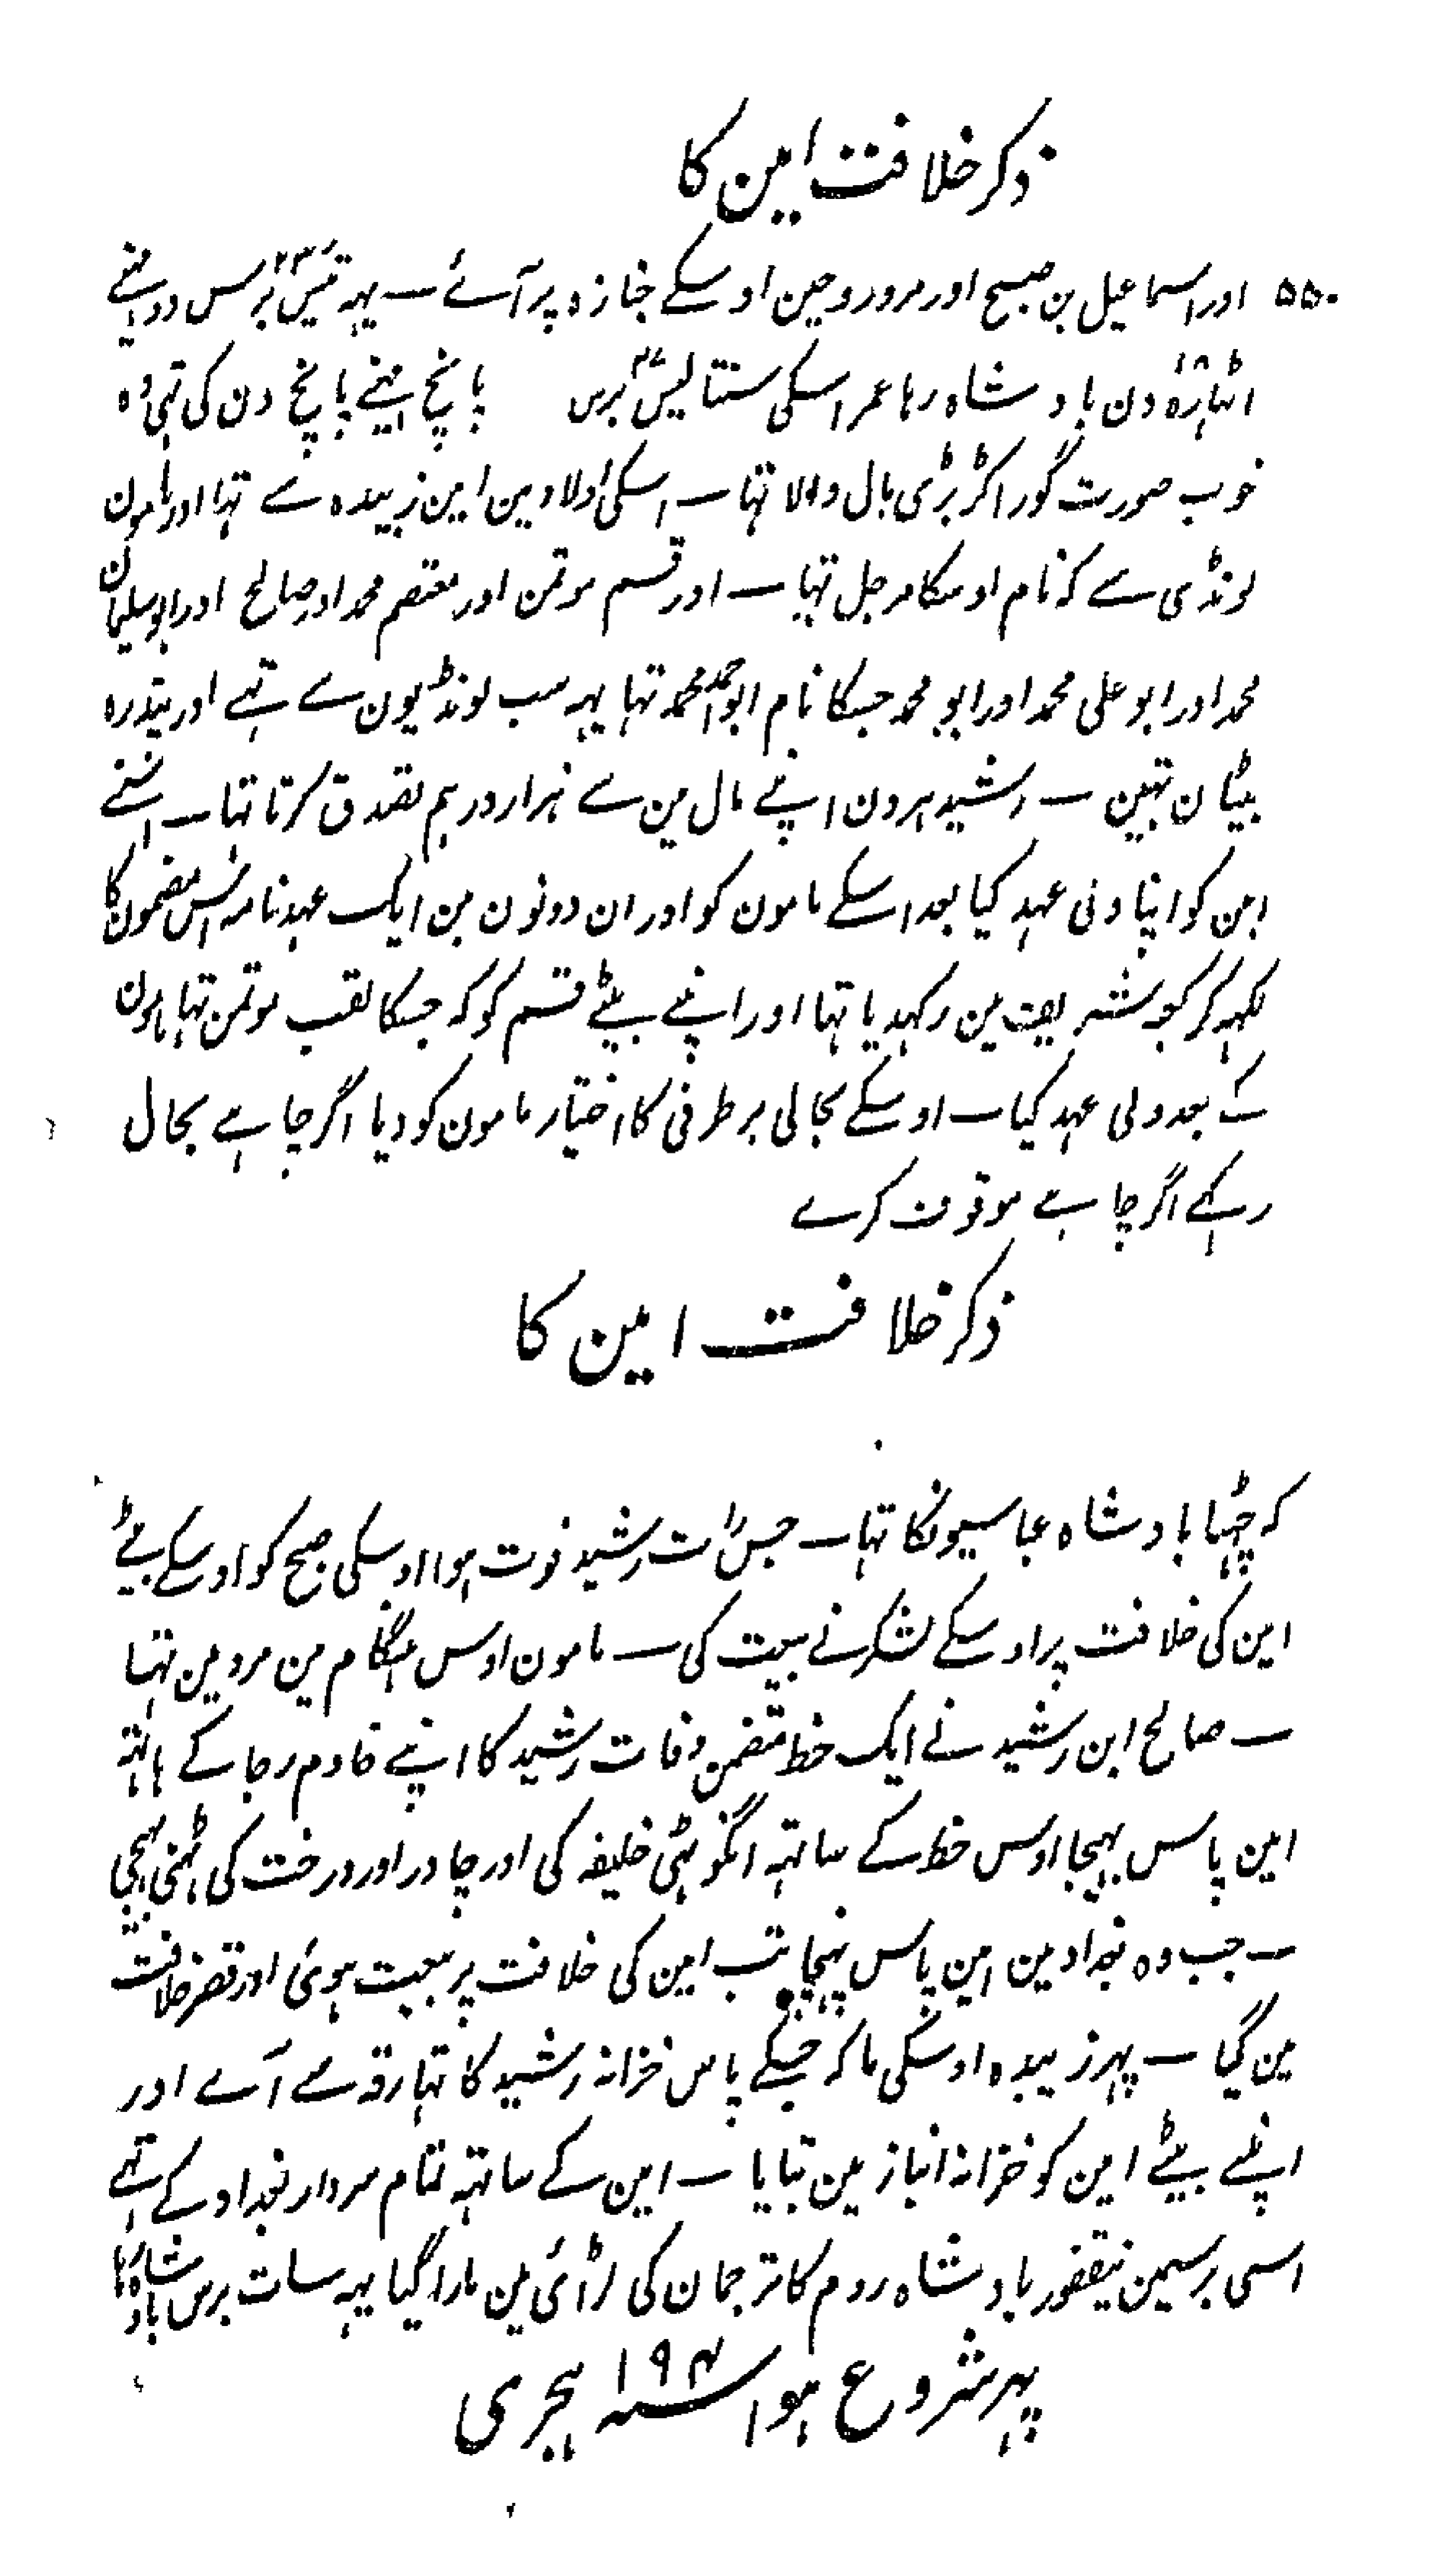 ذکر خلافت امین کا
۵۵۰ اور اسماعیل بن صبیح اور مرور وحین اوسکے جنازہ پر آئے ــ یہہ تئیس ۲۳ برس دو مہنے
اٹہارہ ۱۸ دن بادشاہ رہا عمر اسکی سنتالیس ۴۷ برس پانچ مہنے پانچ دن کی تہی وہ
خوب صورت گورا کڑبڑی بال والا تہا ــ اسکی اولاد مین امین زبیدہ سے تہا اور مامون
لونڈی سے کہ نام اوسکا مرجل تہا ــ اور قسم موتمن اور معتصم محمد اور صالح اور ابو سلیمان
محمد اور ابو علی محمد اور ابو محمد جسکا نام ابو احمد محمد تہا یہہ سب لونڈیون سے تہے اور پندرہ
بیٹیان تہین ــ رشید ہرون اپنے مال مین سے ہزار درہم تصدق کرتا تہا ــ اسنے
امین کو اپنا ولی عہد کیا بعد اسکے مامون کو اور ان دونون مین ایک عہد نامہ اس مضمون کا
لکہہ کر کعبہ شریف مین رکہدیا تہا اور اپنے بیٹے قسم کو کہ جسکا لقب موتمن تہا مامون
کے بعد ولی عہد کیا ــ اوسکے بحالی برطرفی کا اختیار مامون کو دیا اگر چاہے بحال
رکہے اگر چاہے موقوف کرے
ذکر خلافت امین کا
کہ چہٹا بادشاہ عباسیونکا تہا ــ جس رات رشید فوت ہوا اوسکی صبح کو اوسکے بیٹے
امین کی خلافت پر اوسکے لشکر نے بیعت کی ــ مامون اوس ہنگام مین مرو مین تہا
ــ صالح ابن رشید نے ایک خط متضمن وفات رشید کا اپنے خادم رجا کے ہاتہہ
امین پاس بہیجا اوس خط کے ساتہہ انگوٹہی خلیفہ کی اور چادر اور درخت کی ٹہنی بہیجی
ــ جب وہ بغداد مین امین پاس پہنچا تب امین کی خلافت پر بیعت ہوئی اور قصر خلافت
مین گیا ــ پہر زبیدہ اوسکی ما کہ جسکے پاس خزانہ رشید کا تہا رقہ سے آے اور
اپنے بیٹے امین کو خزانہ انباز مین بتایا ــ امین کے ساتہہ تمام سردار بغداد کے تہے
اسی برسمین نیقفور بادشاہ روم کا ترجمان کی لڑائی مین مارا گیا یہہ سات برس بادشاہ رہا
پہر شروع ہوا سنہ ۱۹۴ ہجری